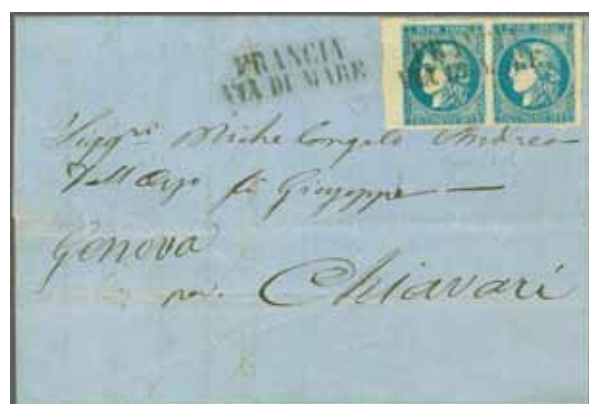 FRANCIA
VIA DI MARE
Sigg.ri Michelangelo Andrea
Dell'Orso fu Giuseppe
Genova
per Chiavari